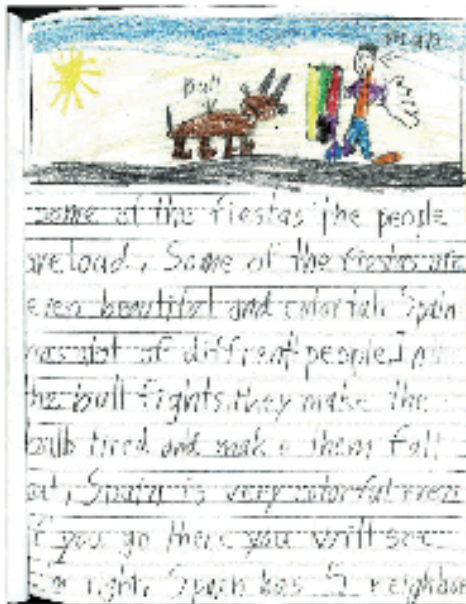 man
bull
some of the fiestas the people
are loud. Some of the fiestas are
even beautiful and colorful. Spain
has alot of diffrent people. In
the bull fights they make the
bulls tired and make them fall
Spain is very colorful even
if you go there you will see
right. Spain has 5 neighbor